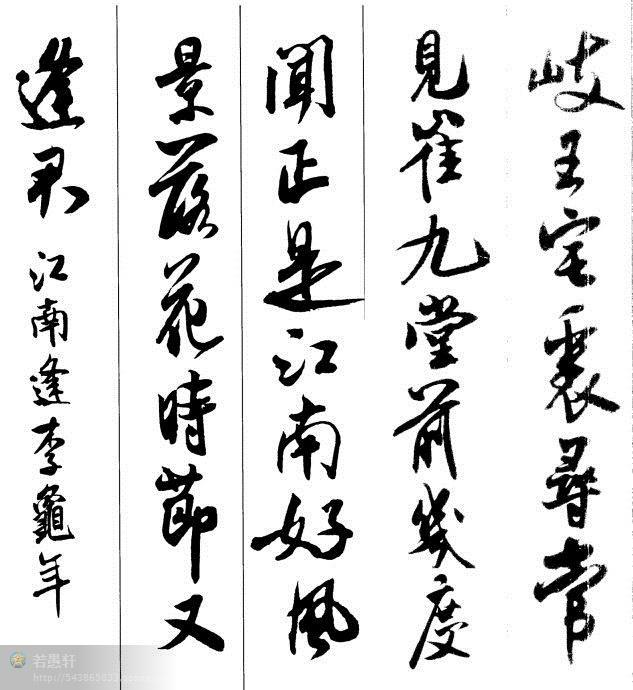 岐王宅裏尋常
見崔九堂前幾度
聞正是江南好風
景落花時節又
逢君 江南逢李龜年
若愚轩